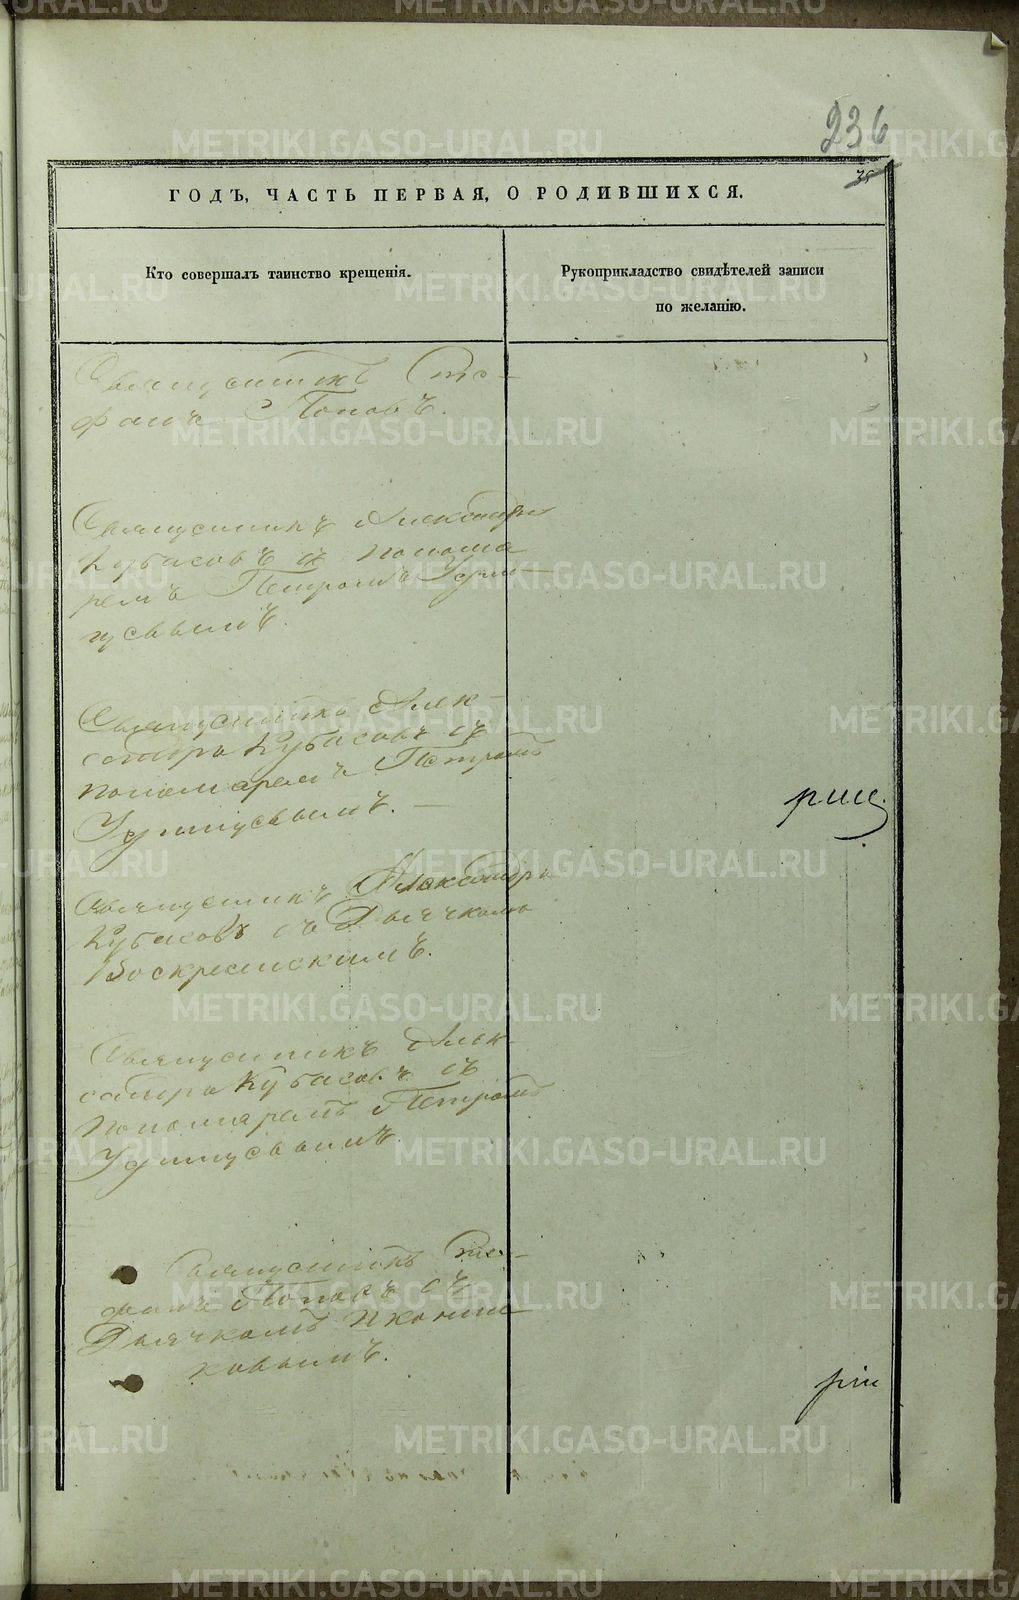 236
35
ГОДЪ, ЧАСТЬ ПЕРВАЯ, О РОДИВШИХСЯ.
Кто совершалъ таинство крещенія.
Рукоприкладство свидѣтелей записи
по желанію.
Священникъ Сте-
фанъ Поповъ.
Священникъ Александръ
Кубасовъ съ понома
ремъ Петромъ
Священникъ Алек-
сандръ Кубасовъ съ
пономаремъ Петромъ
Священникъ Александръ
Кубасовъ съ Дьячкомъ
Воскресенскимъ.
Священникъ Алек-
сандръ Кубасовъ съ
Пономаремъ Петромъ
Священникъ Сте-
фанъ Поповъ съ
Дьячкомъ Иконни
ковымъ.
METRIKI.GASO-URAL.RU